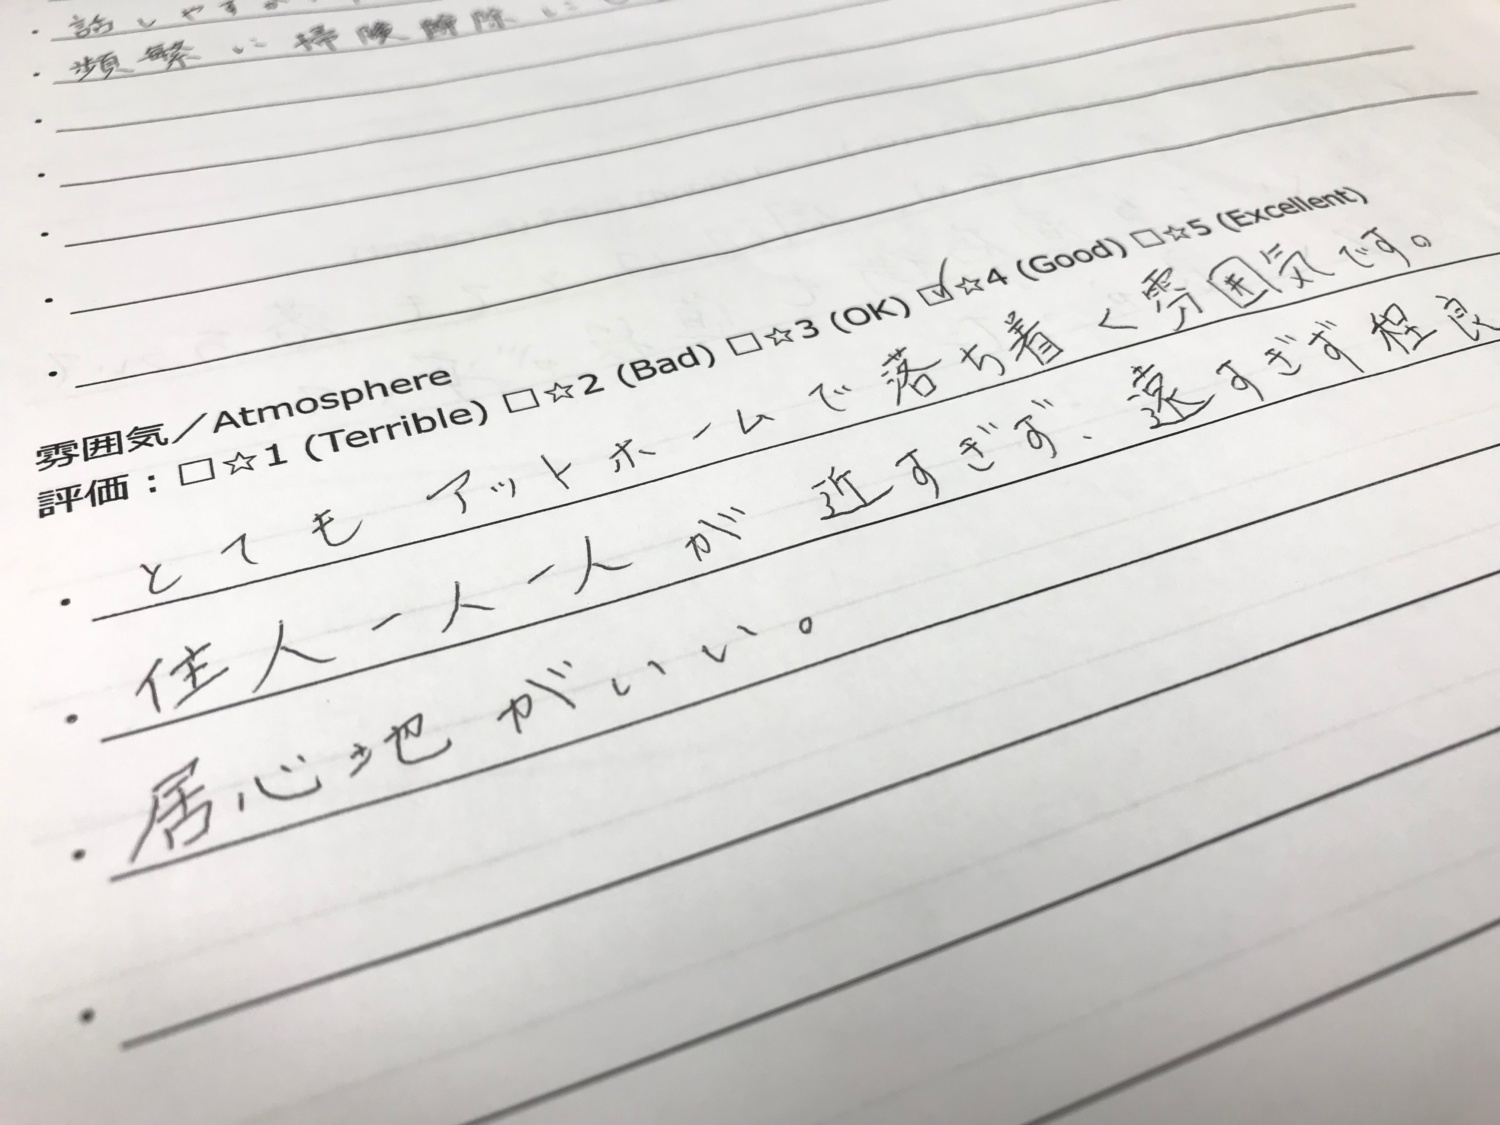 話しやす
頻繁に掃除
雰囲気／Atmosphere
評価：□☆1 (Terrible) □☆2 (Bad) □☆3 (OK) ☑☆4 (Good) □☆5 (Excellent)
・とてもアットホームで落ち着く雰囲気です。
・住人一人一人が近すぎず、遠すぎず程良
・居心地がいい。